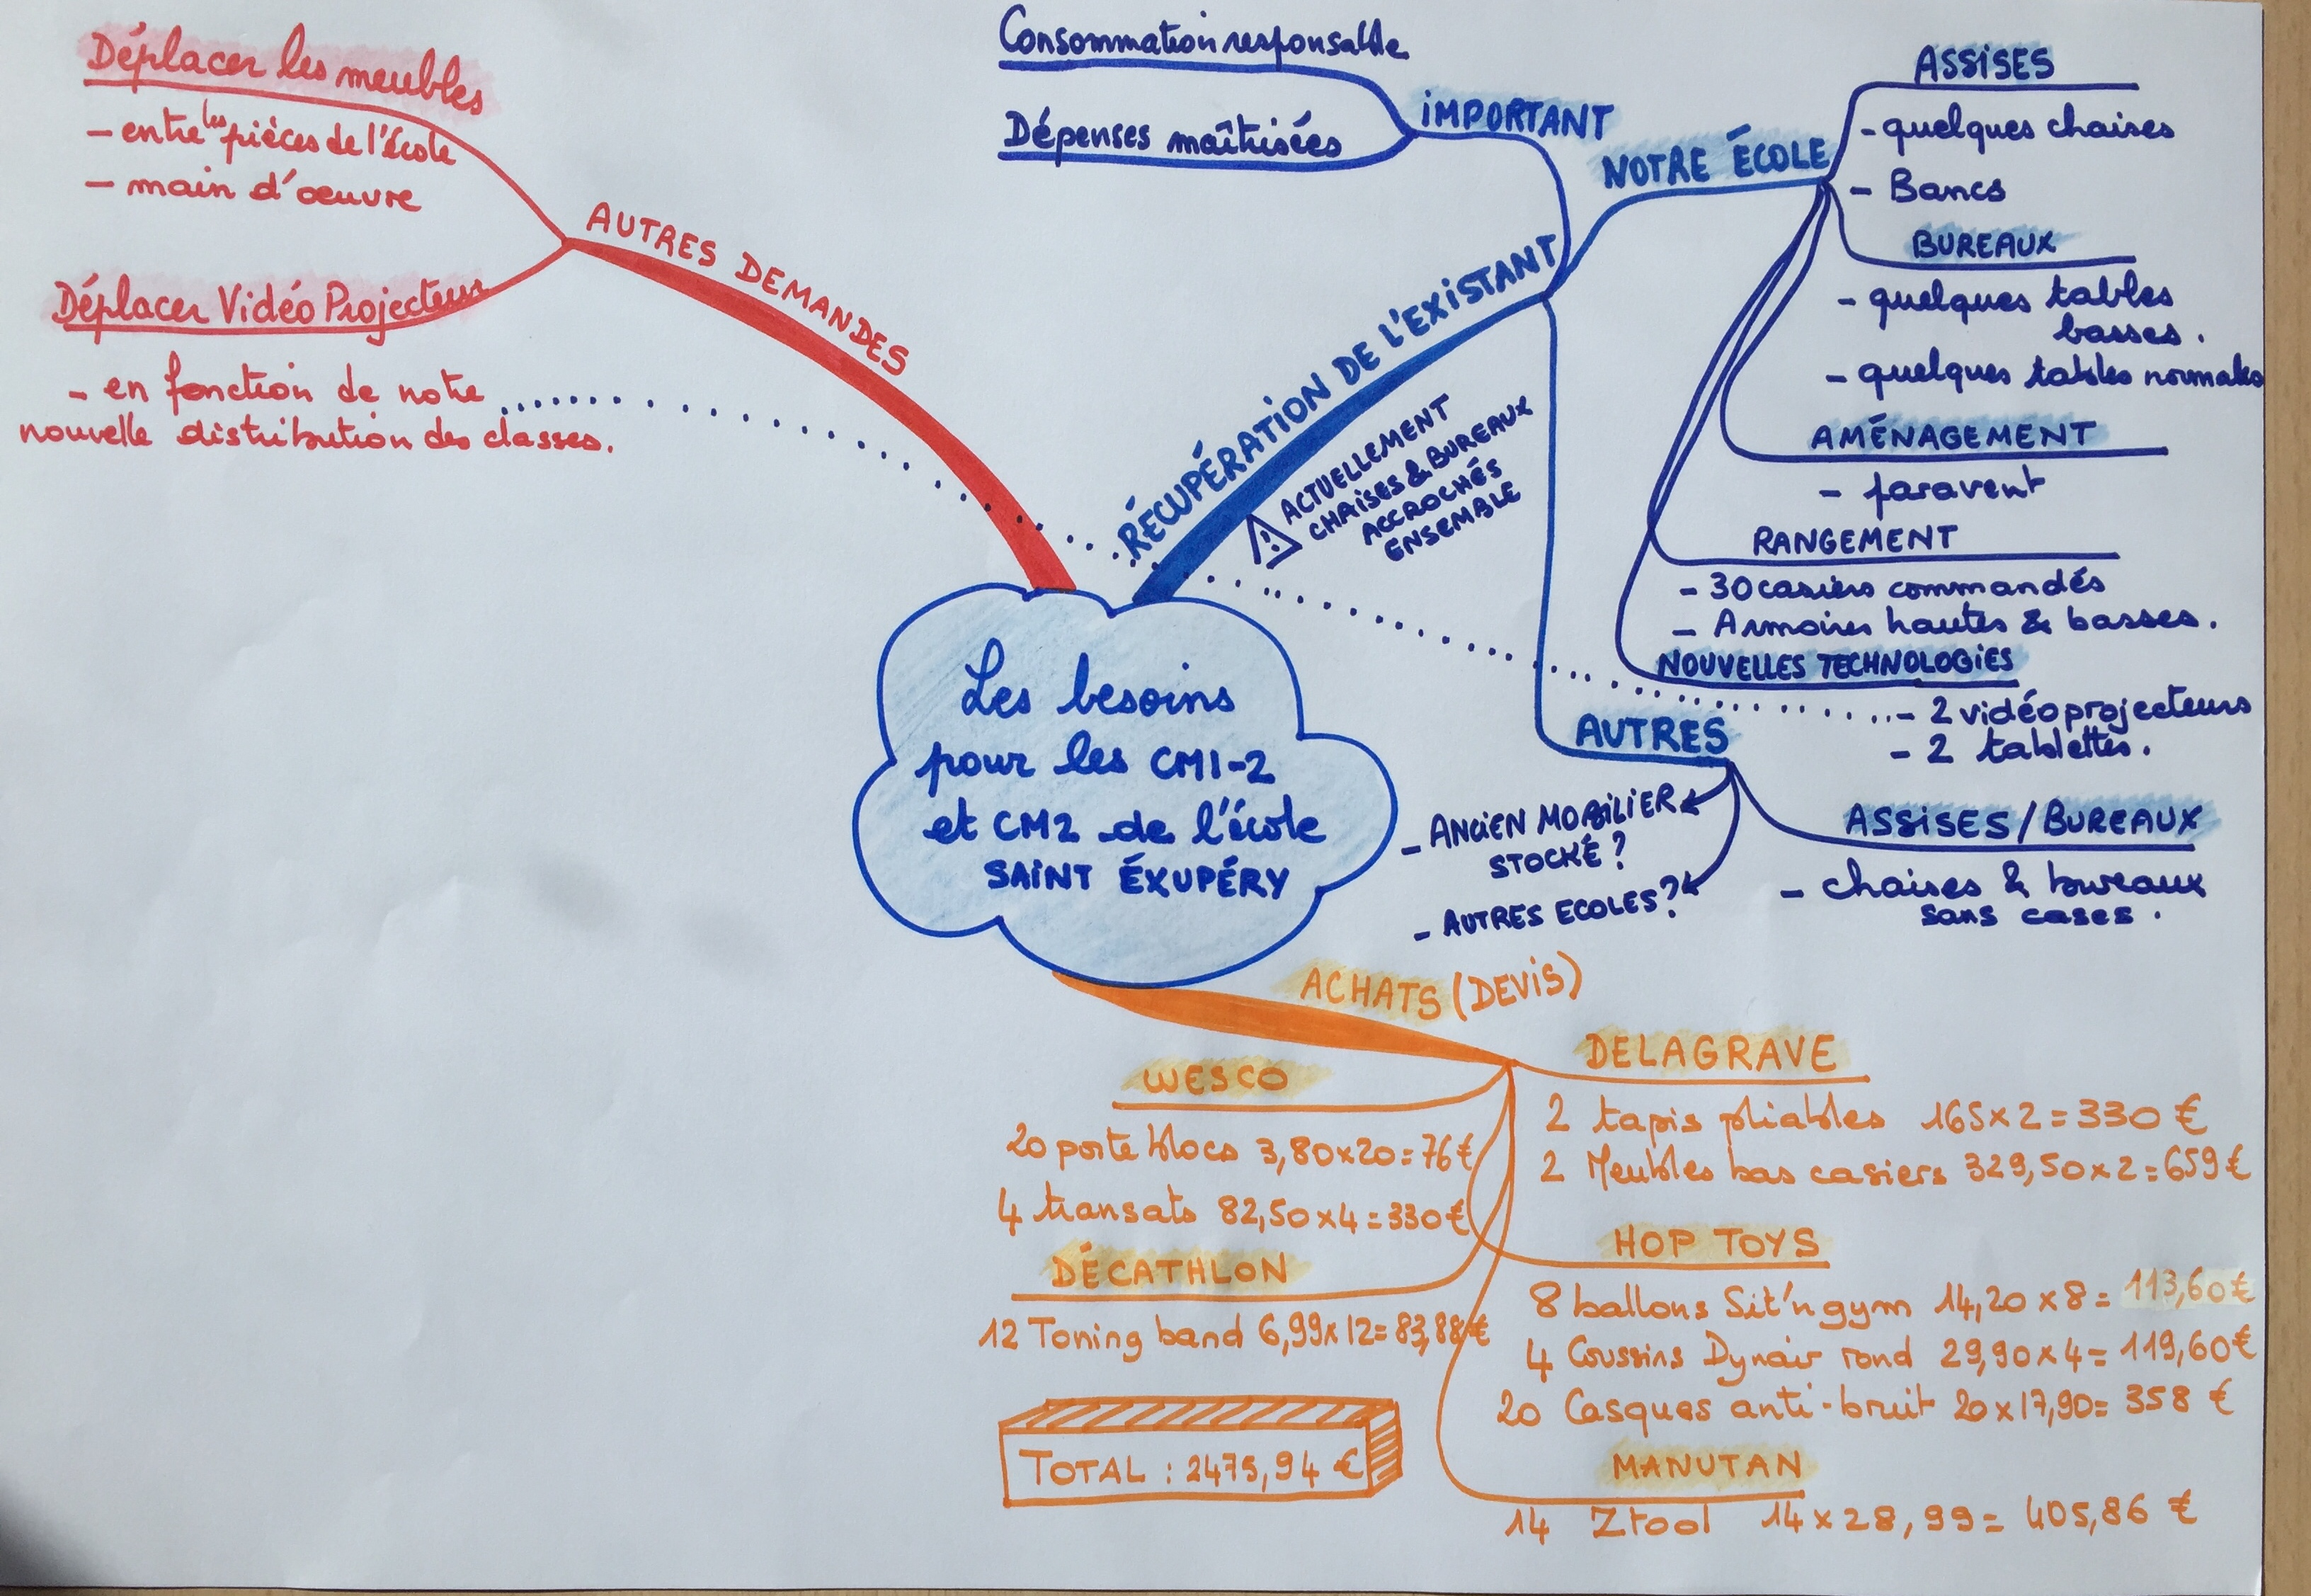 Les besoins
pour les CM1-2
et CM2 de l'école
SAINT ÉXUPÉRY
AUTRES DEMANDES
Déplacer les meubles
- entre les pièces de l'école
- main d'œuvre
Déplacer Vidéo Projecteur
- en fonction de notre
nouvelle distribution des classes.
RÉCUPÉRATION DE L'EXISTANT
ACTUELLEMENT
CHAISES & BUREAUX
ACCROCHÉS
ENSEMBLE
IMPORTANT
Consommation responsable
Dépenses maîtrisées
NOTRE ÉCOLE
ASSISES
- quelques chaises
- Bancs
BUREAUX
- quelques tables
basses.
- quelques tables normales
AMÉNAGEMENT
- paravent
RANGEMENT
- 30 casiers commandés
- Armoires hautes & basses.
NOUVELLES TECHNOLOGIES
- 2 vidéoprojecteurs
- 2 tablettes.
AUTRES
- ANCIEN MOBILIER
STOCKÉ ?
- AUTRES ECOLES ?
ASSISES / BUREAUX
- chaises & bureaux
sans cases.
ACHATS (DEVIS)
WESCO
20 porte blocs 3,80x20=76€
4 transats 82,50x4=330€
DÉCATHLON
12 Toning band 6,99x12=83,88€
TOTAL : 2475,94 €
DELAGRAVE
2 tapis pliables 165x2=330 €
2 Meubles bas casiers 329,50x2=659€
HOP TOYS
8 ballons Sit'n gym 14,20x8= 113,60€
4 Coussins Dynair rond 29,90x4= 119,60€
20 Casques anti-bruit 20x17,90= 358 €
MANUTAN
14 Ztool 14x28,99= 405,86 €